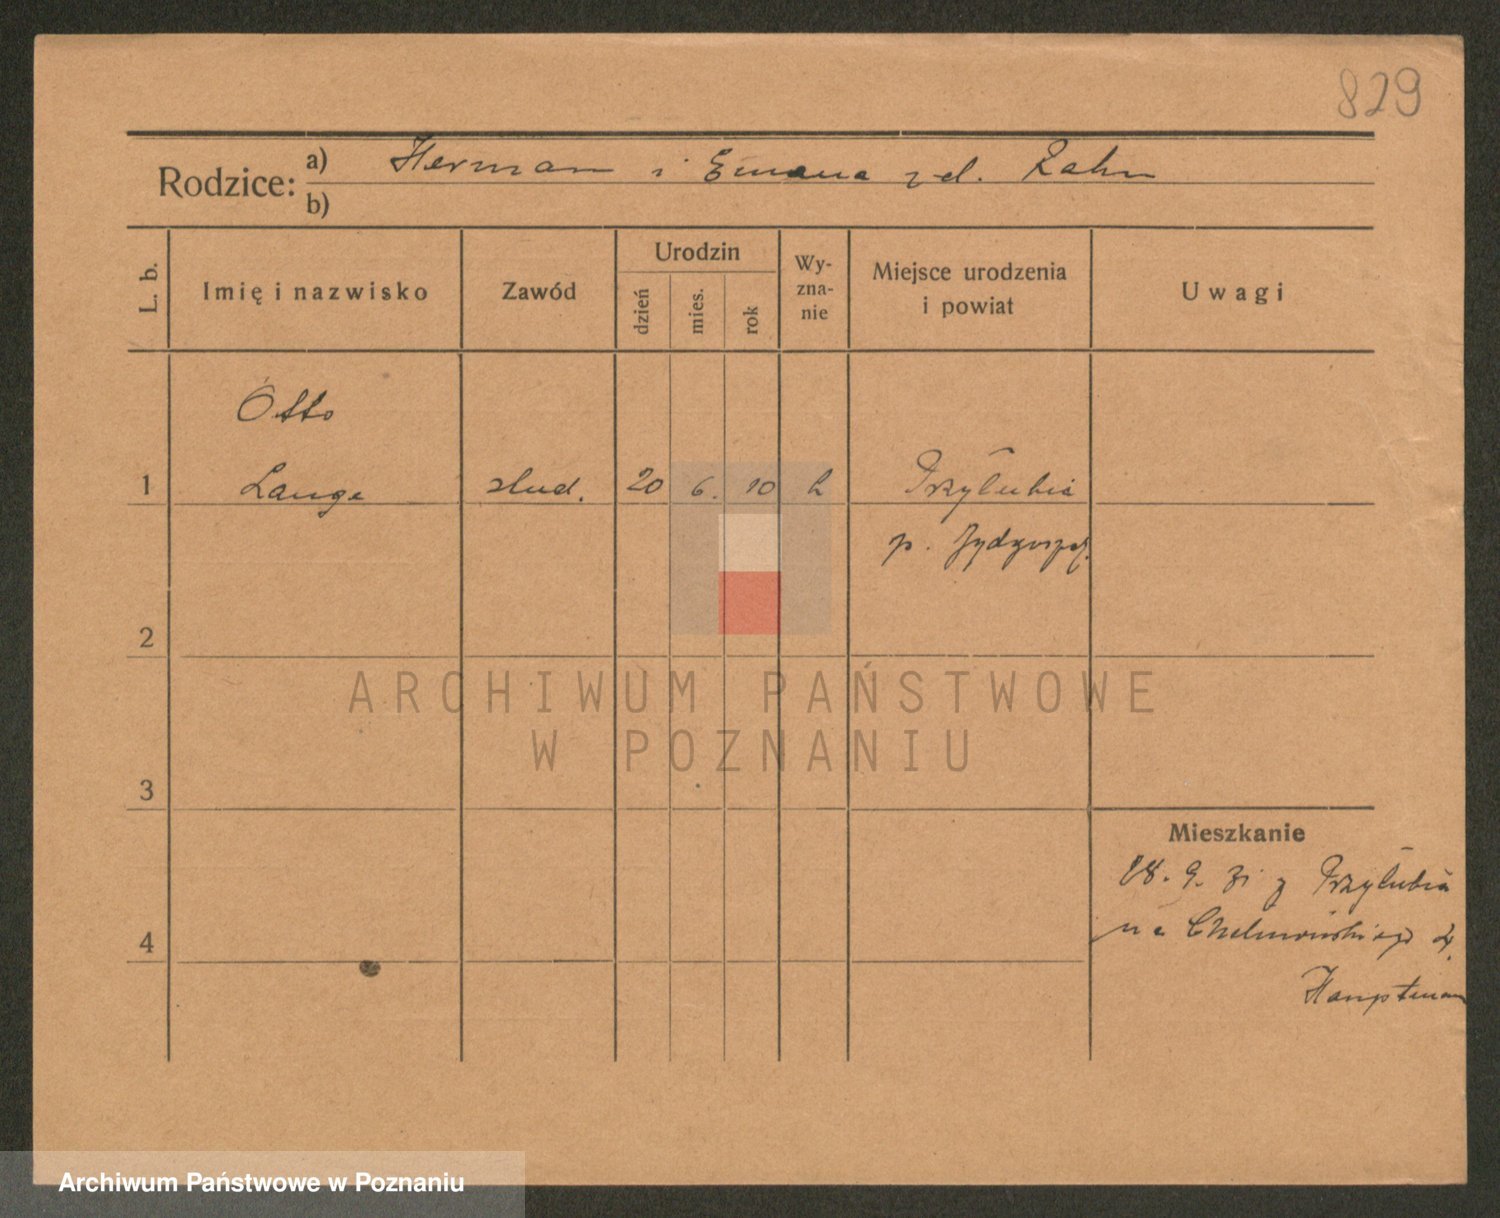 829
Rodzice: a) Herman i Emma zd. Zahn
b)
L. b.
Imię i nazwisko
Zawód
Urodzin
dzień
mies.
rok
Wy-
zna-
nie
Miejsce urodzenia
i powiat
Uwagi
Otto
1 Lange stud. 20 6. 10 Przyłubia
p. Bydgoszcz
2
ARCHIWUM PAŃSTWOWE
W POZNANIU
3
Mieszkanie
18. 9. 31 z Przyłubia
na Chełmońskiego
4
Hauptman
Archiwum Państwowe w Poznaniu